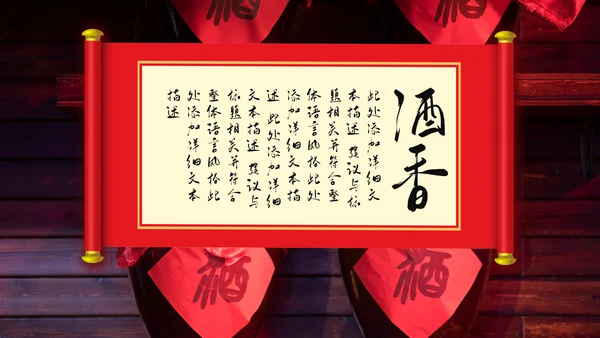 酒
酒
酒香
此处添加详细文
本描述 建议与标
题相关并符合整
体语言风格此处
添加详细文本描
述 此处添加详细
文本描述 建议与
标题相关并符合
整体语言风格此
处添加详细文本
描述
酒
酒